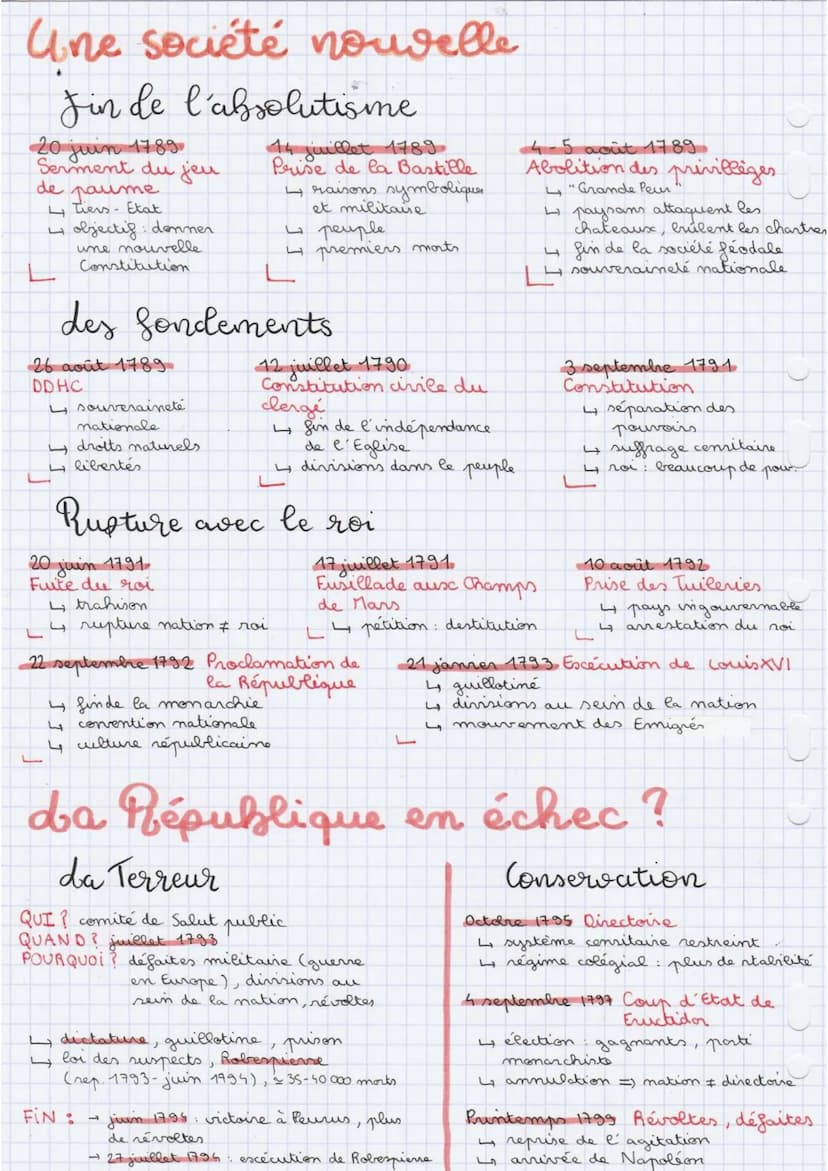 Une société nouvelle
fin de l'absolutisme
20 juin 1789
Serment du jeu
de paume
↳ Tiers-Etat
↳ objectif : donner
une nouvelle
Constitution
14 juillet 1789
Prise de la Bastille
↳ raisons symbolique
et militaire
↳ peuple
↳ premiers morts
4-5 août 1789
Abolition des privillèges
↳ "Grande Peur"
↳ paysans attaquent les
chateaux, brûlent les chartres
↳ fin de la société féodale
↳ souveraineté nationale
des fondements
26 août 1789
DDHC
↳ souveraineté
nationale
↳ droits naturels
↳ libertés
12 juillet 1790
Constitution civile du
clergé
↳ fin de l'indépendance
de l'Eglise
↳ divisions dans le peuple
3 septembre 1791
Constitution
↳ séparation des
pouvoirs
↳ suffrage censitaire
↳ roi : beaucoup de pouv.
Rupture avec le roi
20 juin 1791
Fuite du roi
↳ trahison
↳ rupture nation ≠ roi
17 juillet 1791
Fusillade aux Champs
de Mars
↳ pétition : destitution
10 août 1792
Prise des Tuileries
↳ pays ingouvernable
↳ arrestation du roi
22 septembre 1792 Proclamation de
la République
↳ fin de la monarchie
↳ convention nationale
↳ culture républicaine
21 janvier 1793 Escécution de Louis XVI
↳ guillotiné
↳ divisions au sein de la nation
↳ mouvement des Emigrés
La République en échec ?
La Terreur
QUI ? comité de Salut public
QUAND ? juillet 1793
POURQUOI ? défaites militaire (guerre
en Europe), divisions au
sein de la nation, révoltes
↳ dictature, guillotine, prison
↳ loi des suspects, Robespierre
(sep. 1793 - juin 1994), ≃ 35-40 000 morts
FIN : → juin 1794 : victoire à Fleurus, plus
de révoltes
→ 27 juillet 1794 : escécution de Robespierre
Conservation
Octobre 1795 Directoire
↳ système censitaire restreint
↳ régime colégial : plus de stabilité
4 septembre 1797 Coup d'Etat de
Fructidor
↳ élection : gagnants, parti
monarchiste
↳ annulation => nation ≠ directoire
Printemps 1799 Révoltes, défaites
↳ reprise de l'agitation
↳ arrivée de Napoléon